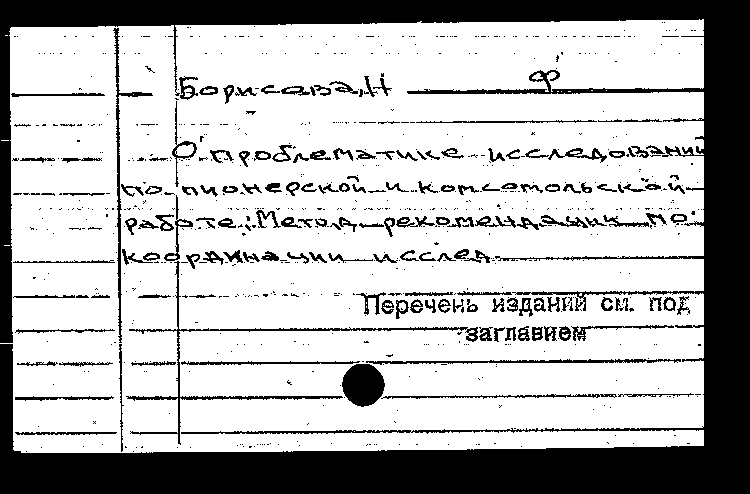 Борисова, Н
Ф
О проблематике исследований
по пионерской и комсомольской
работе: Метод. рекомендации по
координации исслед.
Перечень изданий см. под
заглавием